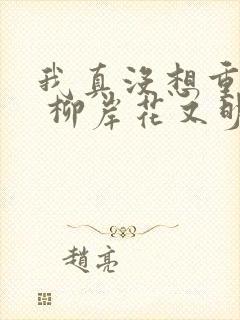 我真没想重
柳岸花又明
趙亮